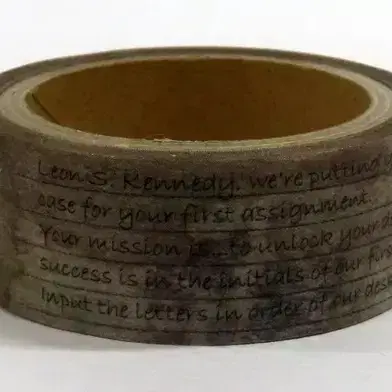 Leon S. Kennedy, we're putting
case for your first assignment.
Your mission is...to unlock your
success is in the initials of our
Input the letters in order of our